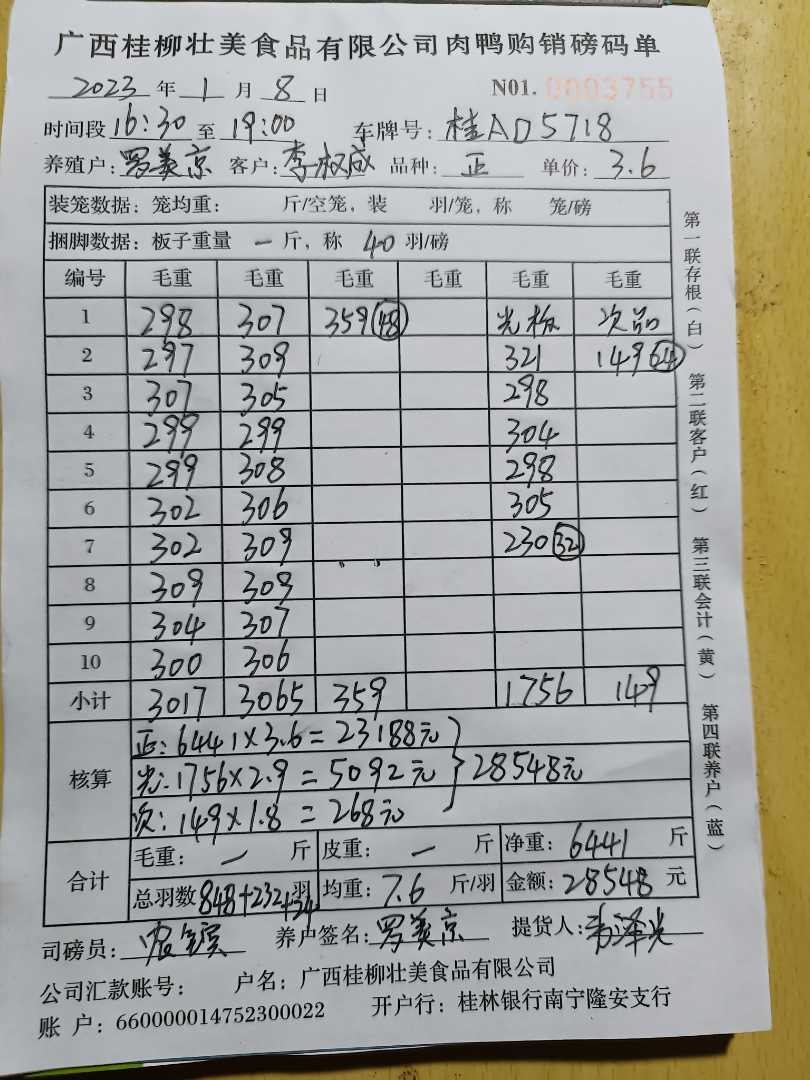 广西桂柳壮美食品有限公司肉鸭购销磅码单
2023 年 1 月 8 日 N01. 0003755
时间段 16:30 至 19:00 车牌号: 桂AD5718
养殖户: 罗美京 客户: 李权成 品种: 正 单价: 3.6
装笼数据: 笼均重: 斤/空笼, 装 羽/笼, 称 笼/磅
捆脚数据: 板子重量 一 斤, 称 40 羽/磅
编号 毛重 毛重 毛重 毛重 毛重 毛重
1 298 307 359 48 光板 次品
2 297 309 321 149
3 307 305 298
4 299 299 304
5 299 308 298
6 302 306 305
7 302 309 230 32
8 309 309
9 304 307
10 300 306
小计 3017 3065 359 1756 149
核算
正: 6441×3.6=23188元
光: 1756×2.9=5092元 } 28548元
次: 149×1.8=268元
合计
毛重: 一 斤 皮重: 一 斤 净重: 6441 斤
总羽数 848+232+ 羽 均重: 7.6 斤/羽 金额: 28548 元
司磅员: 养户签名: 罗美京 提货人:
公司汇款账号: 户名: 广西桂柳壮美食品有限公司
账 户: 660000014752300022 开户行: 桂林银行南宁隆安支行
第一联存根(白) 第二联客户(红) 第三联会计(黄) 第四联养户(蓝)